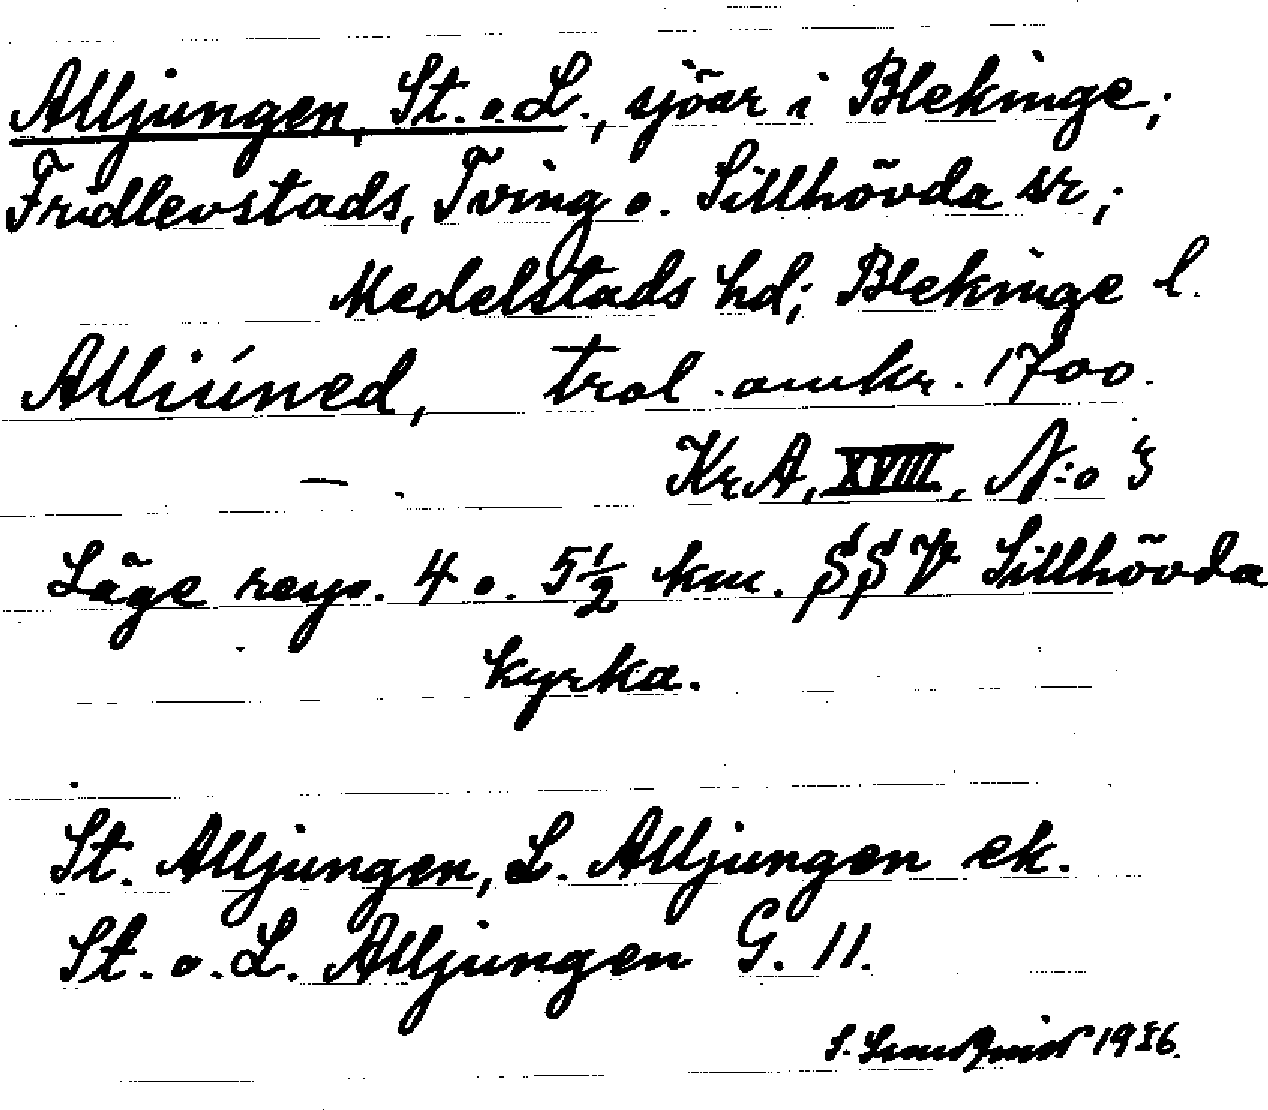 Alljungen, St. o. L., sjöar i Blekinge;
Fridlevstads, Tving o. Sillhövda sr;
Medelstads hd; Blekinge l.
Alliúned, trol. omkr. 1700.
Kr.A, XVIII, N:o 3
Läge resp. 4 o. 5½ km. SSV Sillhövda
kyrka.
St. Alljungen, L. Alljungen ek.
St. o. L. Alljungen G. 11.
S. 1956.